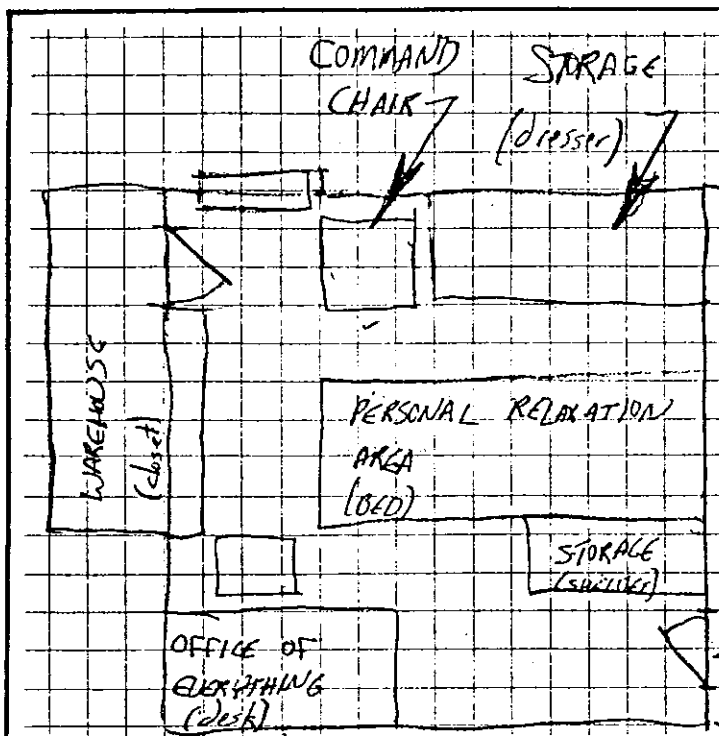 COMMAND
CHAIR
STORAGE
(dresser)
WAREHOUSE
(closet)
PERSONAL RELAXATION
AREA
(BED)
STORAGE
(SHELVES)
OFFICE OF
EVERYTHING
(desk)